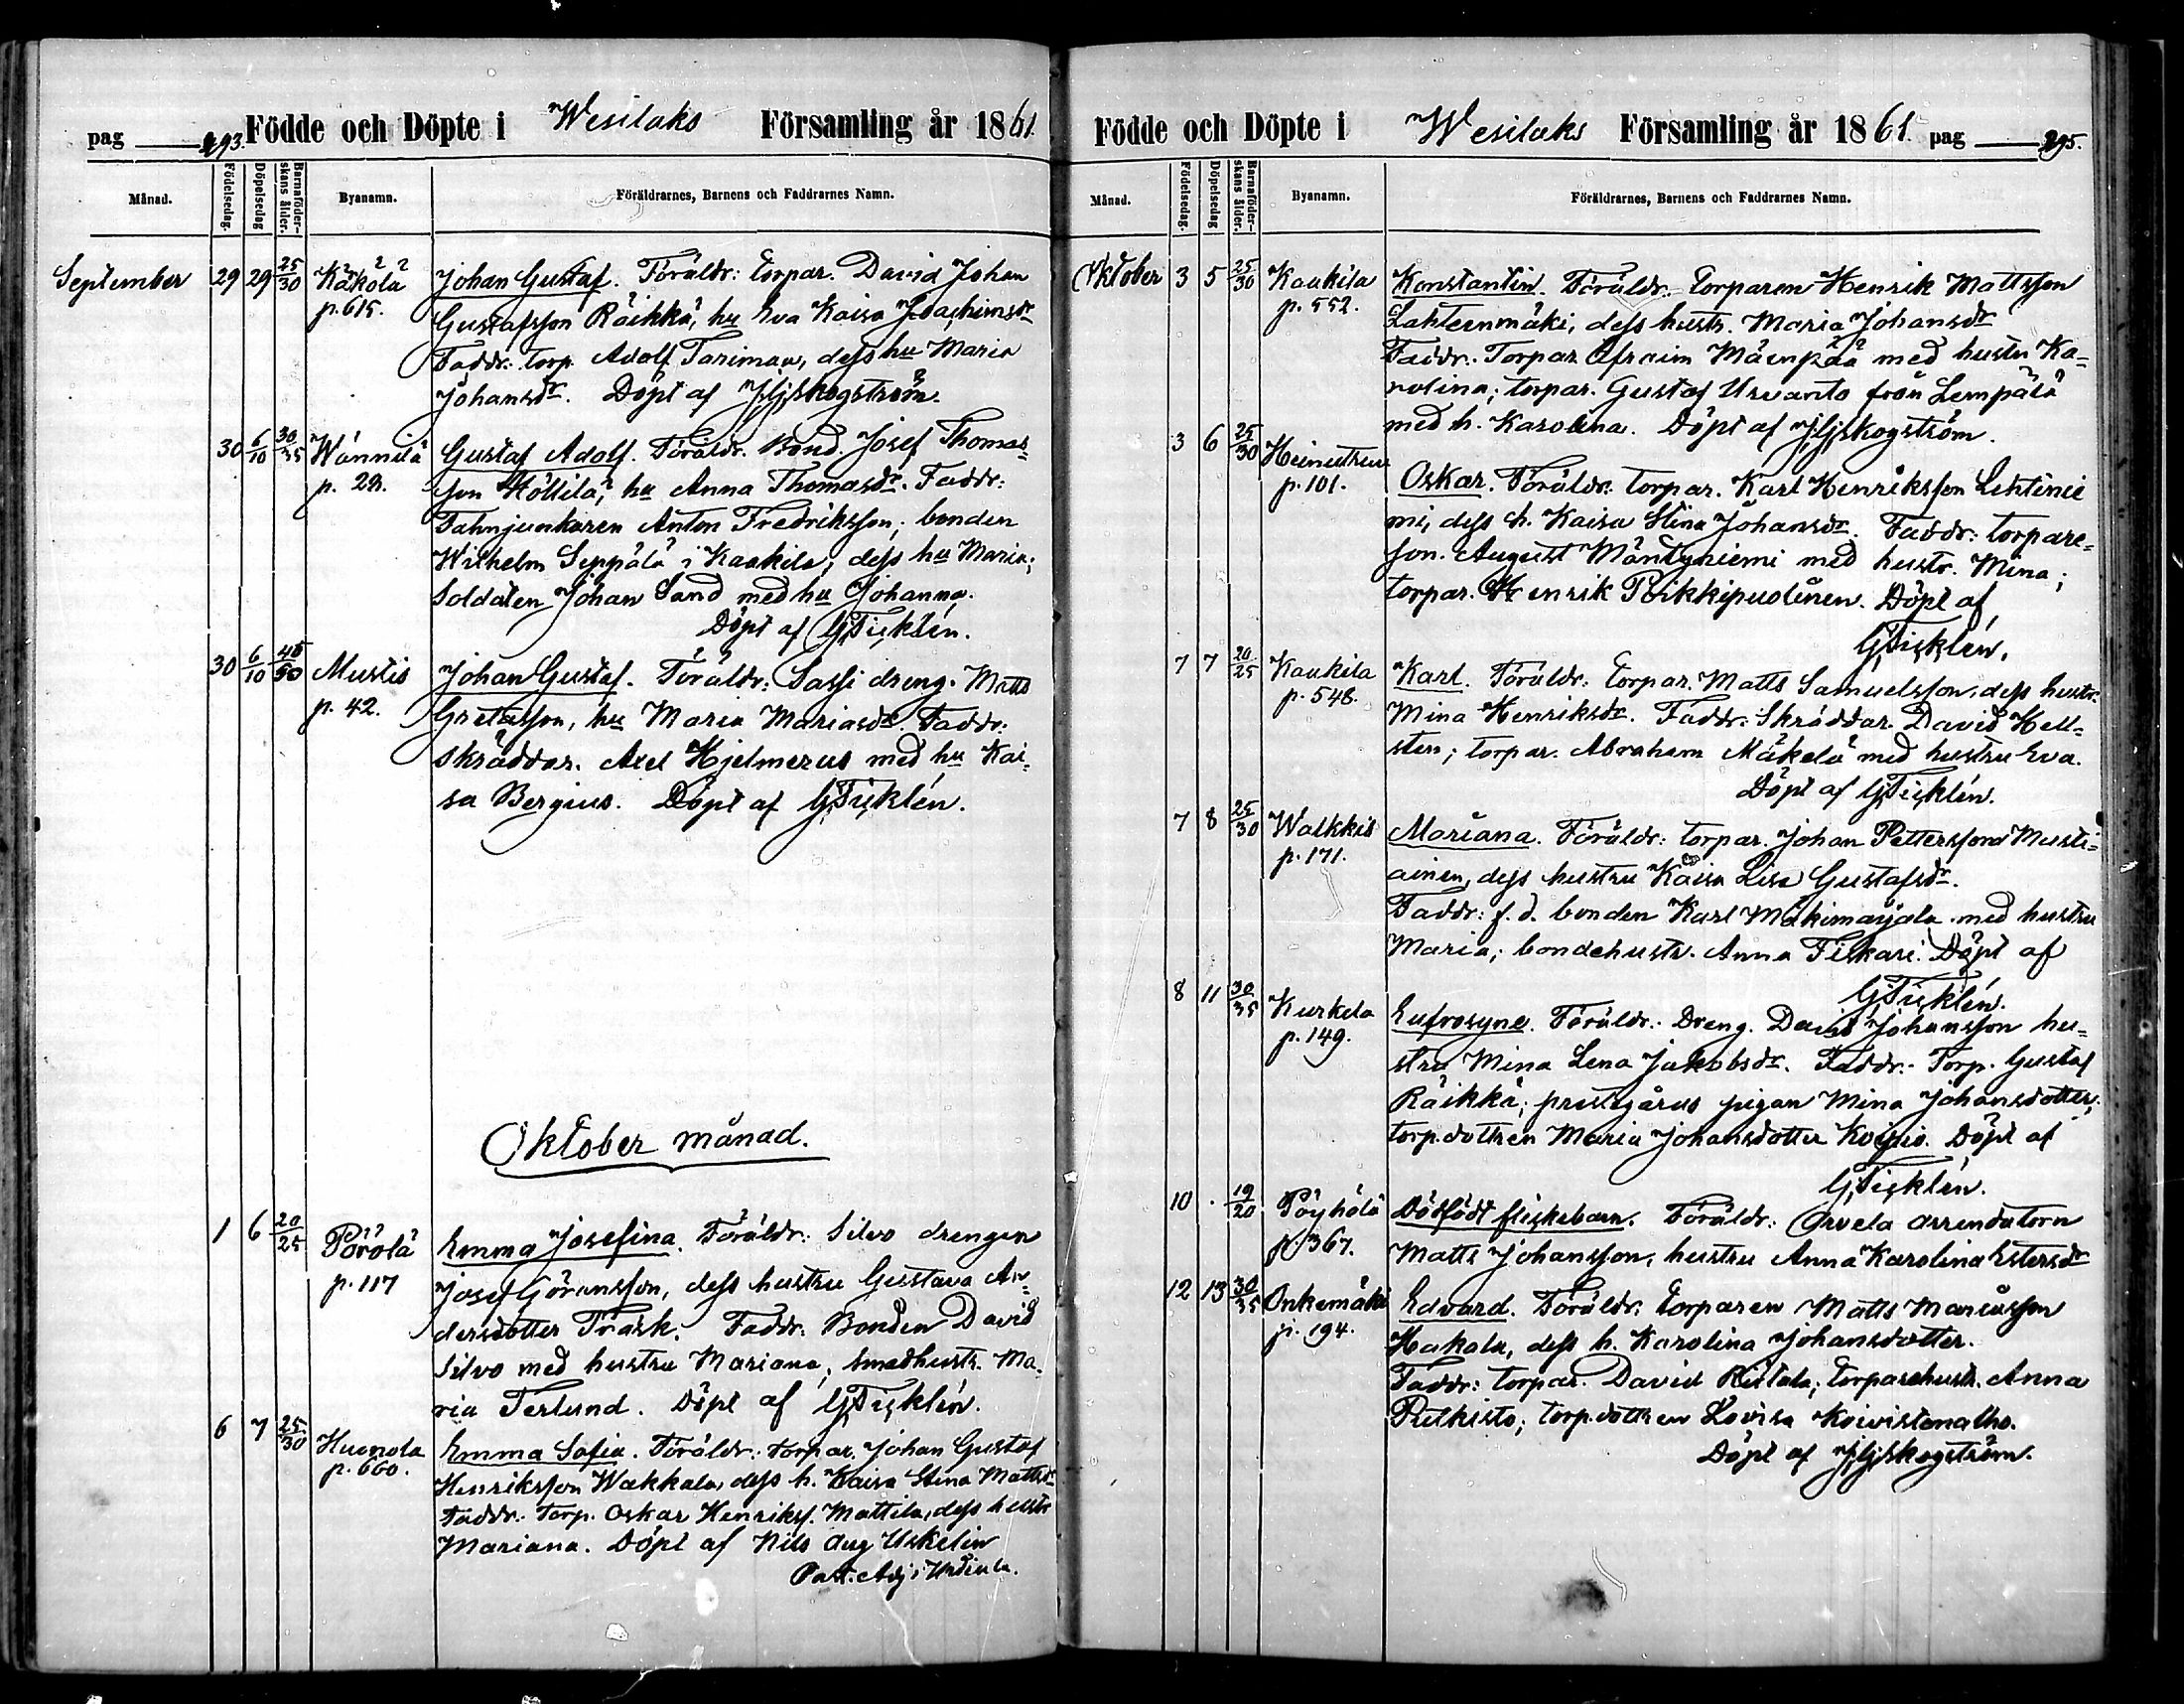 pag 293. Födde och Döpte i Wesilaks Församling år 1861.
Månad. Födelsedag. Döpelsedag Barnaföder-skans ålder. Byanamn. Föräldrarnes, Barnens och Faddrarnes Namn.
September 29 29 25/30 Käkölä Johan Gustaf. Föräldr: torpar. David Johan
p. 615. Gustafsson Räikkä, hu Eva Kaisa Joachimsdr
Faddr: torp. Adolf Tanimaa, dess hu Maria
Johansdr. Döpt af JGSkogström.
30 6/10 30/35 Wännilä Gustaf Adolf. Föräldr. Bond. Josef Thomas-
p. 28. son Höllilä, hu Anna Thomasdr. Faddr:
Fahnjunkaren Anton Fredriksson; bonden
Wilhelm Seppälä i Kaakila, dess hu Maria;
Soldaten Johan Sand med hu Johanna.
Döpt af GFicklén.
30 6/10 45/50 Mustis Johan Gustaf. Föräldr: Sassi dreng. Matts
p. 42. Gretasson, hu Maria Mariasdr. Faddr:
skräddar. Axel Hjelmerus med hu Kai-
sa Bergius. Döpt af GFicklén.
Oktober månad.
1 6 20/25 Pörölä Emma Josefina. Föräldr: Silvo drengen
p. 117 Josef Göransson, dess hustru Gustava An-
dersdotter Träsk. Faddr: Bonden David
Silvo med hustru Mariana; smedhustr. Ma-
ria Terlund. Döpt af GFicklén.
6 7 25/30 Huonola Emma Sofia. Föräldr: torpar. Johan Gustaf
p. 660. Henriksson Wakkala, dess h. Kaisa Stina Mattsdr
Faddr: torp. Oskar Henrikss. Mattila, dess hustr
Mariana. Döpt af Nils Aug Uskelin
Past. Adj i Urdiala.
Födde och Döpte i Wesilaks Församling år 1861. pag 295.
Månad. Födelsedag. Döpelsedag Barnaföder-skans ålder. Byanamn. Föräldrarnes, Barnens och Faddrarnes Namn.
Oktober 3 5 25/30 Kaakila Konstantin. Föräldr. torparen Henrik Mattsson
p. 552. Lahteenmäki, dess hustr. Maria Johansdr
Faddr. Torpar Efraim Mäenpää med hustru Ka-
rolina; torpar. Gustaf Urvanto från Lempälä
med h. Karolina. Döpt af JGSkogström.
3 6 25/30 Heinustrum
p. 101. Oskar. Föräldr: torpar. Karl Henriksson Lehtinie
mi, dess h. Kaisa Stina Johansdr. Faddr: torpare-
son. August Mäntyniemi med hustr. Mina;
torpar. Henrik Poikkipuolinen. Döpt af
GFicklén.
7 7 20/25 Kaakila Karl. Föräldr: torpar. Matts Samuelsson, dess hustr.
p. 548. Mina Henriksdr. Faddr: Skräddar. David Hell-
sten; torpar. Abraham Mäkelä med hustru Eva.
Döpt af GFicklén.
7 8 25/30 Walkkis Mariana. Föräldr: torpar. Johan Pettersson Musti-
p. 171. ainen, dess hustru Kaisa Lisa Gustafsdr.
Faddr: f.d. bonden Karl Mäkimarjala med hustru
Maria; bondehustr. Anna Fiskari. Döpt af
GFicklén.
8 11 30/35 Kurkela Eufrosyne. Föräldr: Dreng. David Johansson hu-
p. 149. stru Mina Lena Jakobsdr. Faddr: Torp. Gustaf
Räikkä; prestgårds pigan Mina Johansdotter;
torp.dottren Maria Johansdotter Koijis. Döpt af
GFicklén.
10 . 19/20 Pöyhölä Dödfödt flickebarn. Föräldr: Orvela arrendatorn
p. 367. Matts Johansson, hustru Anna Karolina Estersdr
12 13 30/35 Onkemäki Edvard. Föräldr. torparen Matts Mariasson
p. 194. Hakala, dess h. Karolina Johansdotter.
Faddr: torpar. David Ritala; torparehustr. Anna
Pitkisto; torp.dottren Lovisa Koivistonalho.
Döpt af JGSkogström.